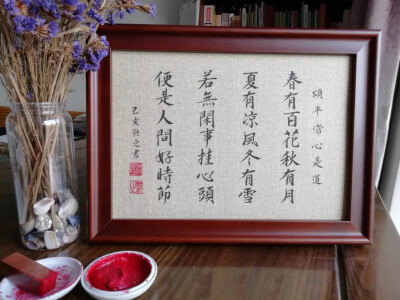 頌平常心是道
春有百花秋有月
夏有涼風冬有雪
若無閑事挂心頭
便是人間好時節